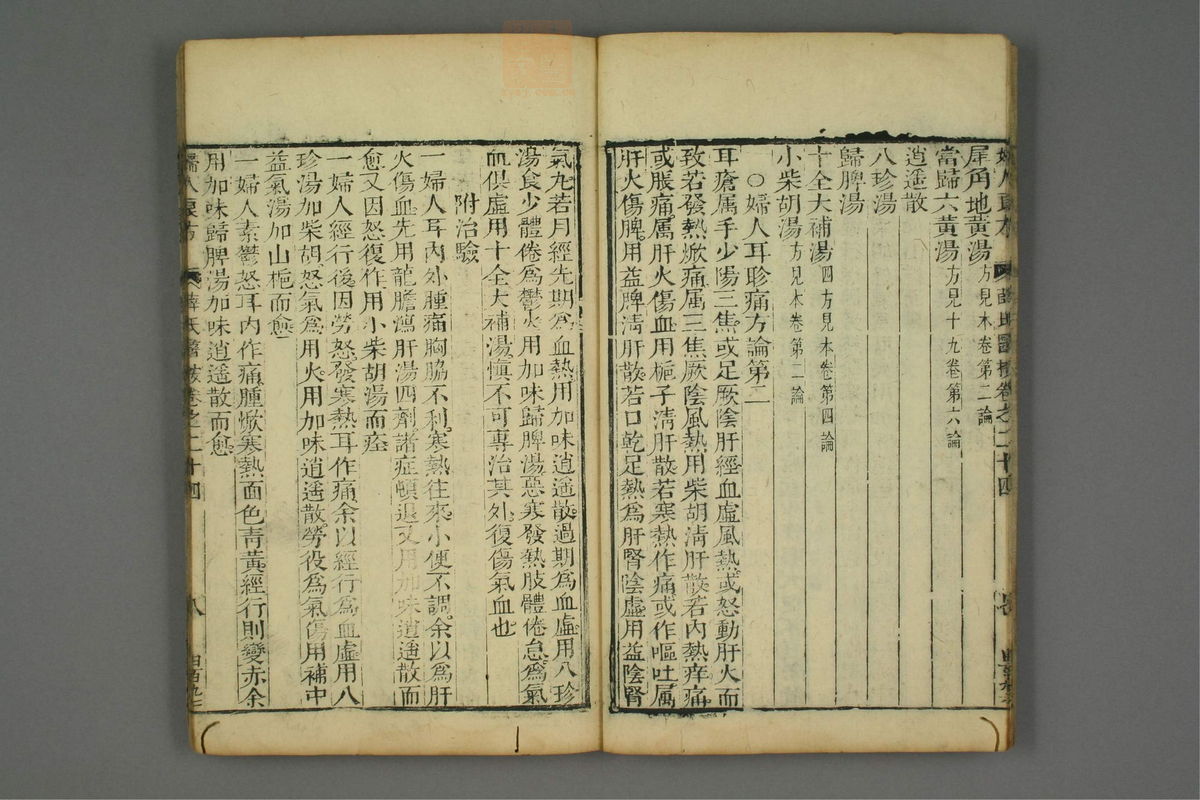 犀角地黃湯方見本卷第二論
當歸六黃湯方見十九卷第六論
逍遥散
八珍湯
歸脾湯
十全大補湯四方見本卷第四論
小柴胡湯方見本卷第二論
○婦人耳聤痛方論第二
耳瘡属手少陽三焦或足厥陰肝經血虛風熱或怒動肝火而
致若發熱焮痛属三焦厥陰風熱用柴胡淸肝散若内熱痒痛
或脹痛属肝火傷血用梔子淸肝散若寒熱作痛或作嘔吐属
肝火傷脾用益脾淸肝散若口乾足熱爲肝腎陰虛用益陰腎
氣丸若月經先期爲血熱用加味逍遥散過期爲血虛用八珍
湯食少體倦爲鬱火用加味歸脾湯惡寒發熱肢體倦怠爲氣
血俱虛用十全大補湯愼不可專治其外復傷氣血也
附治驗
一婦人耳内外腫痛胸脇不利寒熱往來小便不調余以爲肝
火傷血先用龍膽瀉肝湯四劑諸症頓退又用加味逍遥散而
愈又因怒復作用小柴胡湯而痊
一婦人經行後因勞怒發寒熱耳作痛余以經行爲血虛用八
珍湯加柴胡怒氣爲用火用加味逍遥散勞役爲氣傷用補中
益氣湯加山梔而愈
一婦人素鬱怒耳内作痛腫焮寒熱面色靑黃經行則變赤余
用加味歸脾湯加味逍遥散而愈
婦人良方 薛氏醫按卷之二十四 八